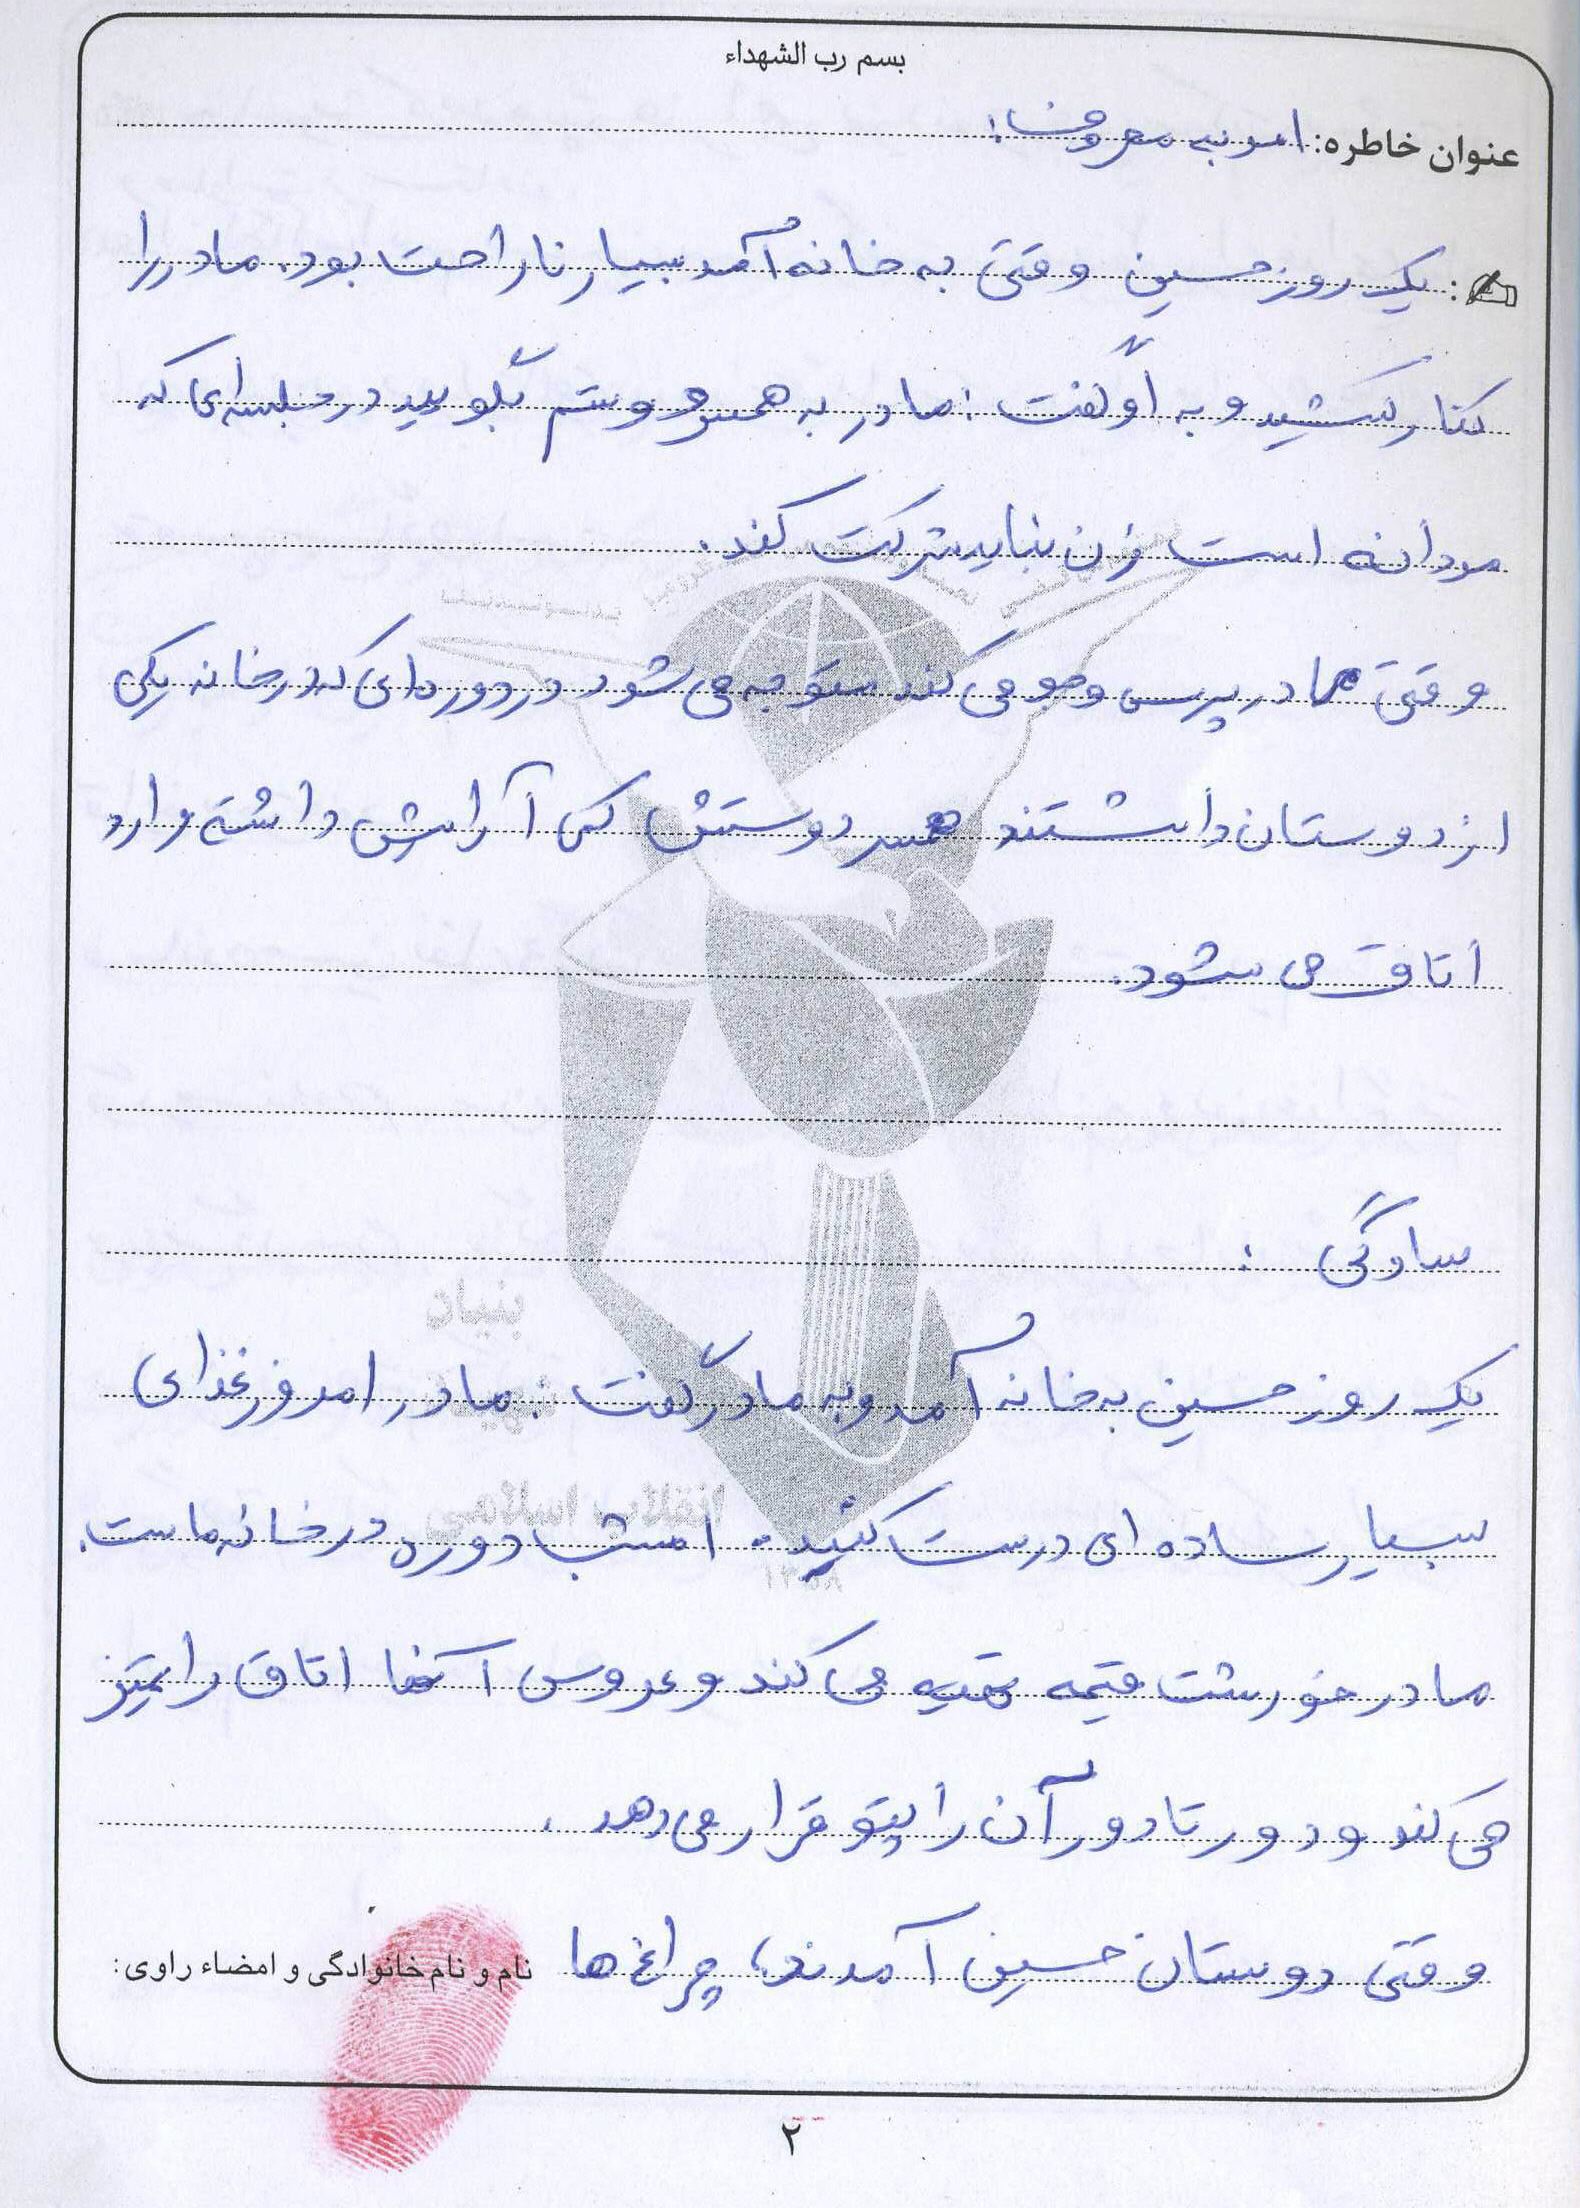 بسم رب الشهداء
عنوان خاطره: امر به معروف:
یک روز حسین وقتی به خانه آمد بسیار ناراحت بود. مادر را
کنار کشید و به او گفت: مادر به همسر دوستم بگویید در جلسه‌ای که
مردانه است زن نباید شرکت کند.
وقتی مادر پرس وجو می کند متوجه می شود در دوره‌ای که در خانه یکی
از دوستان داشتند همسر دوستش کمی آرایش داشته وارد
اتاق می شود.
سادگی :
یک روز حسین به خانه آمد و به مادر گفت: مادر امروز غذای
بسیار ساده ای درست کنید. امشب دوره در خانه ماست.
مادر خورشت قیمه تهیه می کند و عروس آنها اتاق را تمیز
می کند و دور تا دور آن را پتو قرار می دهد.
وقتی دوستان حسین آمدند، چراغ ها
نام و نام خانوادگی و امضاء راوی:
۲
بنیاد
شهید
انقلاب اسلامی